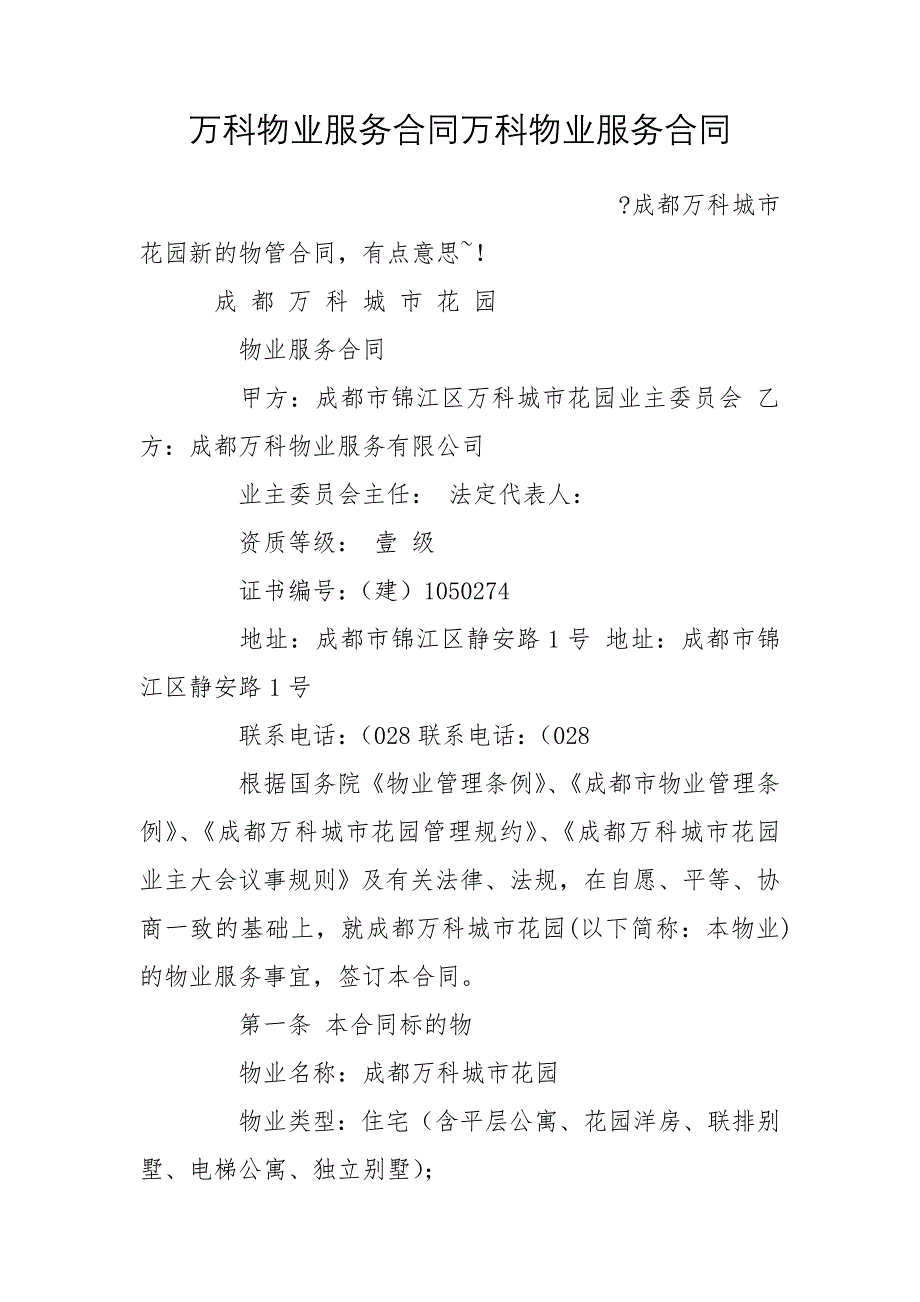 万科物业服务合同万科物业服务合同
?成都万科城市
花园新的物管合同，有点意思~！
成 都 万 科 城 市 花 园
物业服务合同
甲方：成都市锦江区万科城市花园业主委员会 乙
方：成都万科物业服务有限公司
业主委员会主任： 法定代表人：
资质等级： 壹 级
证书编号：（建）1050274
地址：成都市锦江区静安路1号 地址：成都市锦
江区静安路1号
联系电话：（028联系电话：（028
根据国务院《物业管理条例》、《成都市物业管理条
例》、《成都万科城市花园管理规约》、《成都万科城市花园
业主大会议事规则》及有关法律、法规，在自愿、平等、协
商一致的基础上，就成都万科城市花园(以下简称：本物业)
的物业服务事宜，签订本合同。
第一条 本合同标的物
物业名称：成都万科城市花园
物业类型：住宅（含平层公寓、花园洋房、联排别
墅、电梯公寓、独立别墅）；